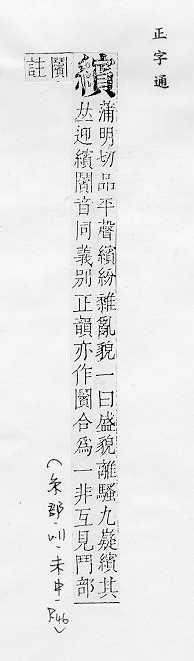 正字通
繽
蒲明切品平聲繽紛雜亂貌一曰盛貌離騷九嶷繽其
𠀤迎繽音同義別正韻亦作合爲一非互見鬥部
註
(糸部 未中 P46)